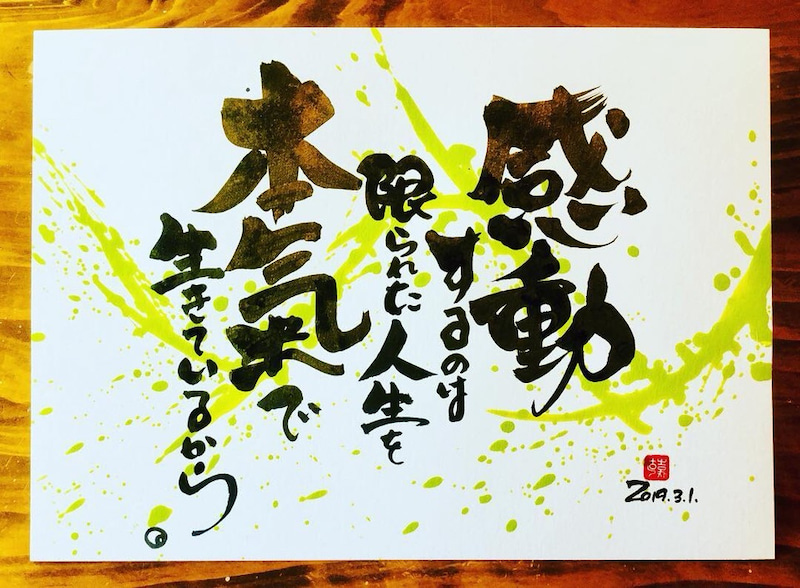 感動
するのは
限られた人生を
本氣で
生きているから。
2019.3.1.